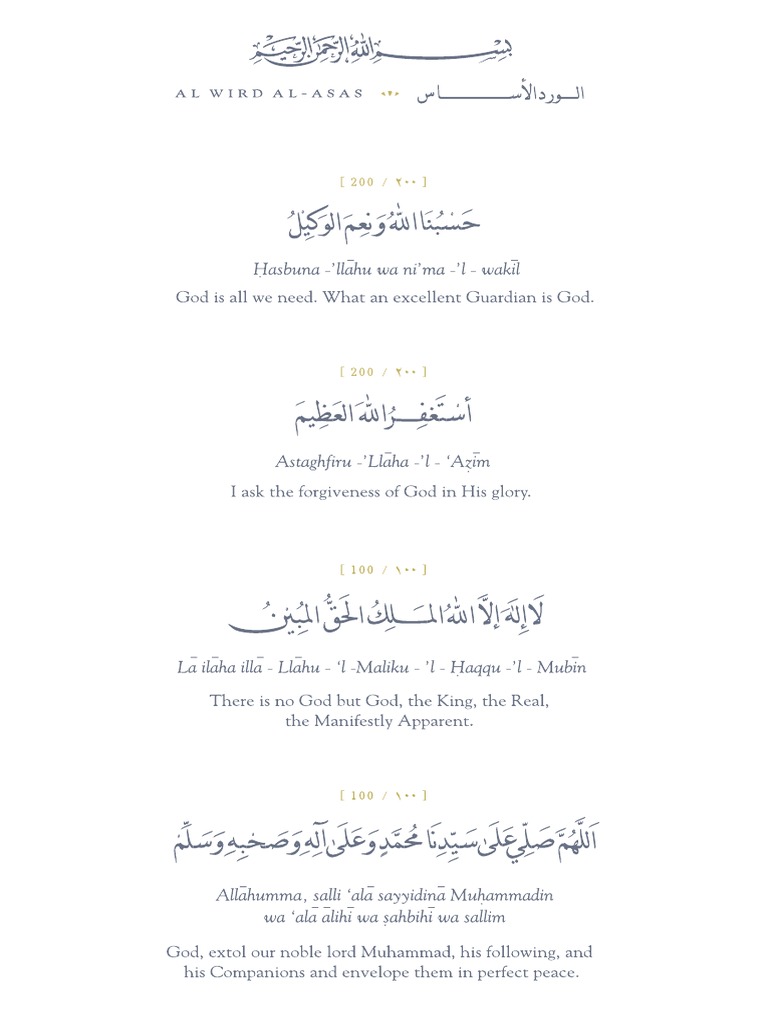 بِسْمِ اللهِ الرَّحْمٰنِ الرَّحِيْمِ
AL WIRD AL-ASAS الورد الأساس
[ 200 / ٢٠٠ ]
حَسْبُنَا اللهُ وَنِعمَ الوَكِيْلُ
Ḥasbuna -’llāhu wa ni’ma -’l - wakīl
God is all we need. What an excellent Guardian is God.
[ 200 / ٢٠٠ ]
أسْتَغفِرُ اللهَ العَظِيمَ
Astaghfiru -’Llāha -’l - ‘Aẓīm
I ask the forgiveness of God in His glory.
[ 100 / ١٠٠ ]
لَا إِلَهَ إلَّا اللهُ المَلِكُ الحَقُّ المُبِينُ
Lā ilāha illā - Llāhu - ‘l -Maliku - ’l - Ḥaqqu -’l - Mubīn
There is no God but God, the King, the Real,
the Manifestly Apparent.
[ 100 / ١٠٠ ]
اَللَّهُمَّ صَلِّي عَلَىٰ سَيِّدِنَا مُحَمَّدٍ وَعَلَىٰ آلِهِ وَصَحْبِهِ وَسَلِّمْ
Allāhumma, salli ‘alā sayyidinā Muḥammadin
wa ‘alā ālihī wa ṣahbihī wa sallim
God, extol our noble lord Muhammad, his following, and
his Companions and envelope them in perfect peace.